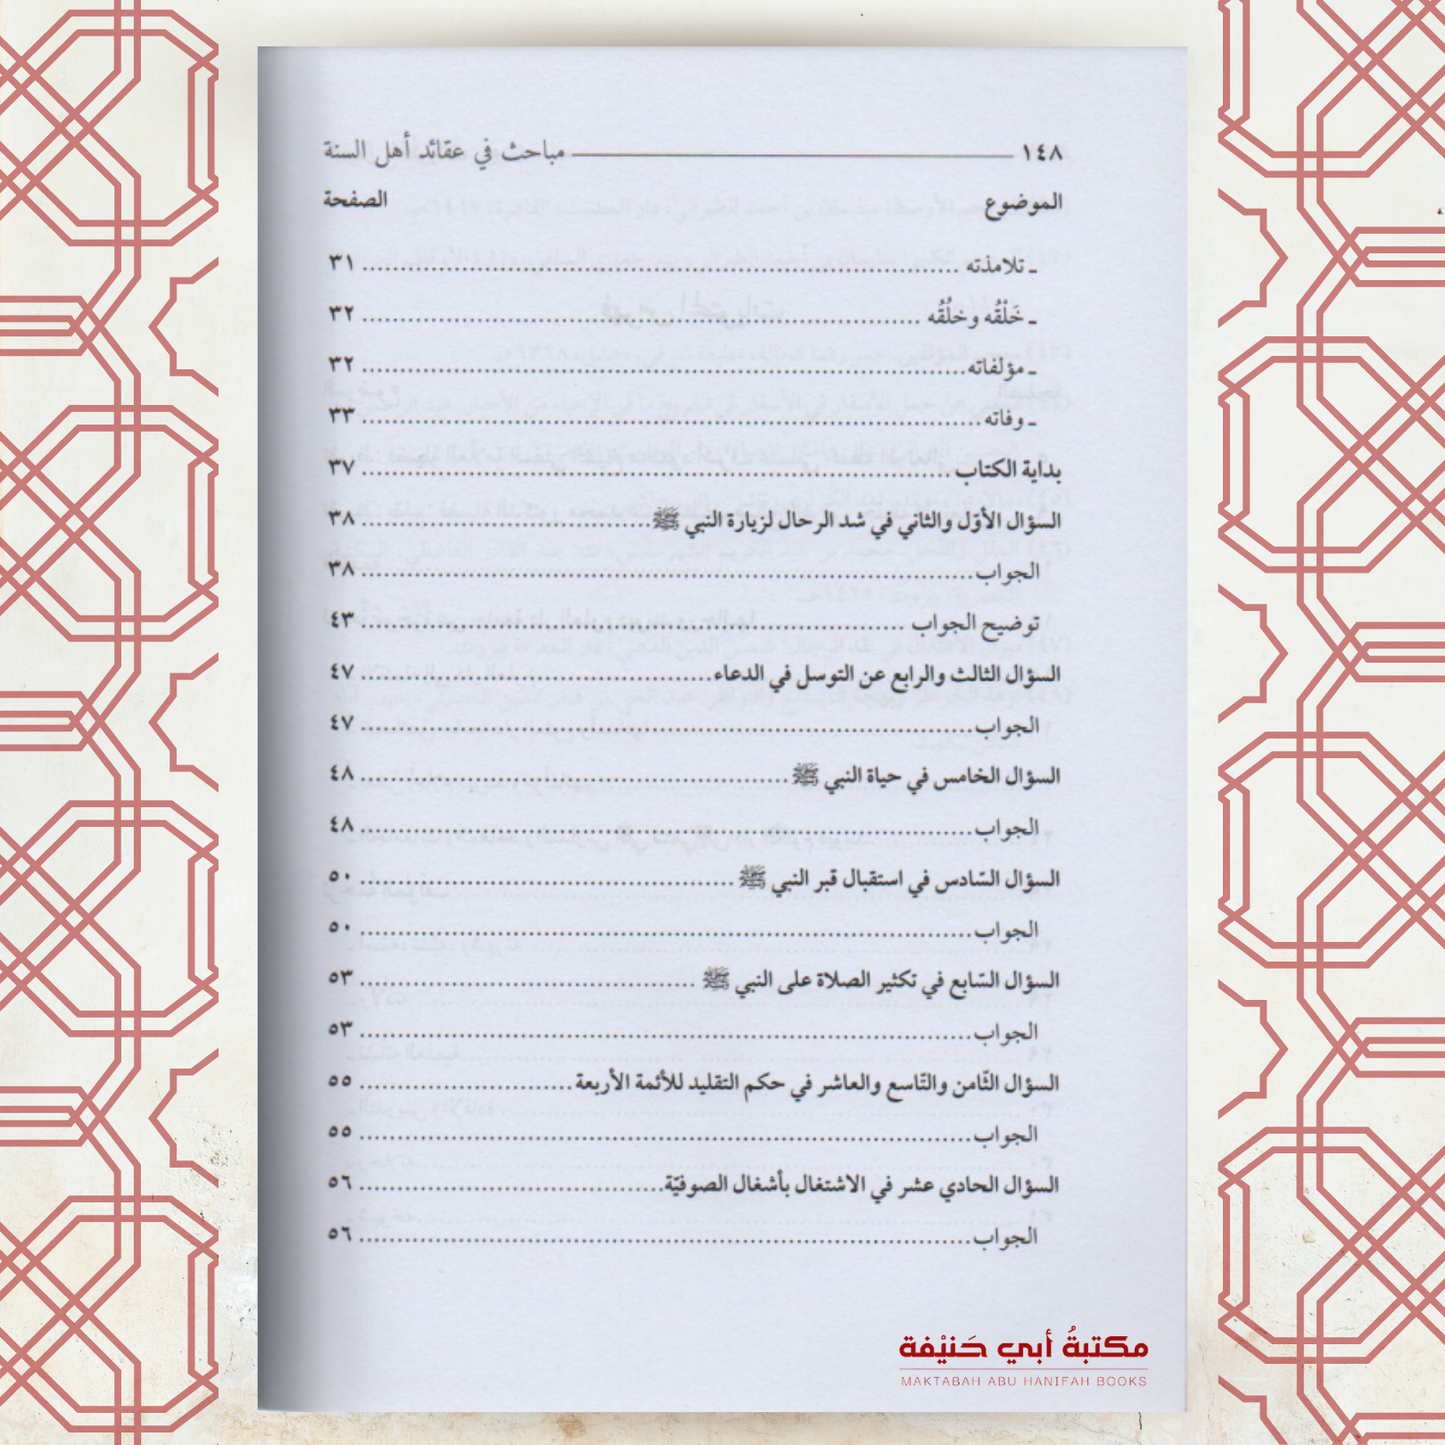 ١٤٨ مباحث في عقائد أهل السنة
الموضوع الصفحة
ـ تلامذته ٣١
ـ خَلْقُه وخلُقُه ٣٢
ـ مؤلفاته ٣٢
ـ وفاته ٣٣
بداية الكتاب ٣٧
السؤال الأوّل والثاني في شد الرحال لزيارة النبي ﷺ ٣٨
الجواب ٣٨
توضيح الجواب ٤٣
السؤال الثالث والرابع عن التوسل في الدعاء ٤٧
الجواب ٤٧
السؤال الخامس في حياة النبي ﷺ ٤٨
الجواب ٤٨
السؤال السّادس في استقبال قبر النبي ﷺ ٥٠
الجواب ٥٠
السؤال السّابع في تكثير الصلاة على النبي ﷺ ٥٣
الجواب ٥٣
السؤال الثّامن والتّاسع والعاشر في حكم التقليد للأئمة الأربعة ٥٥
الجواب ٥٥
السؤال الحادي عشر في الاشتغال بأشغال الصوفيّة ٥٦
الجواب ٥٦
مكتبةُ أبي حَنيْفة
MAKTABAH ABU HANIFAH BOOKS